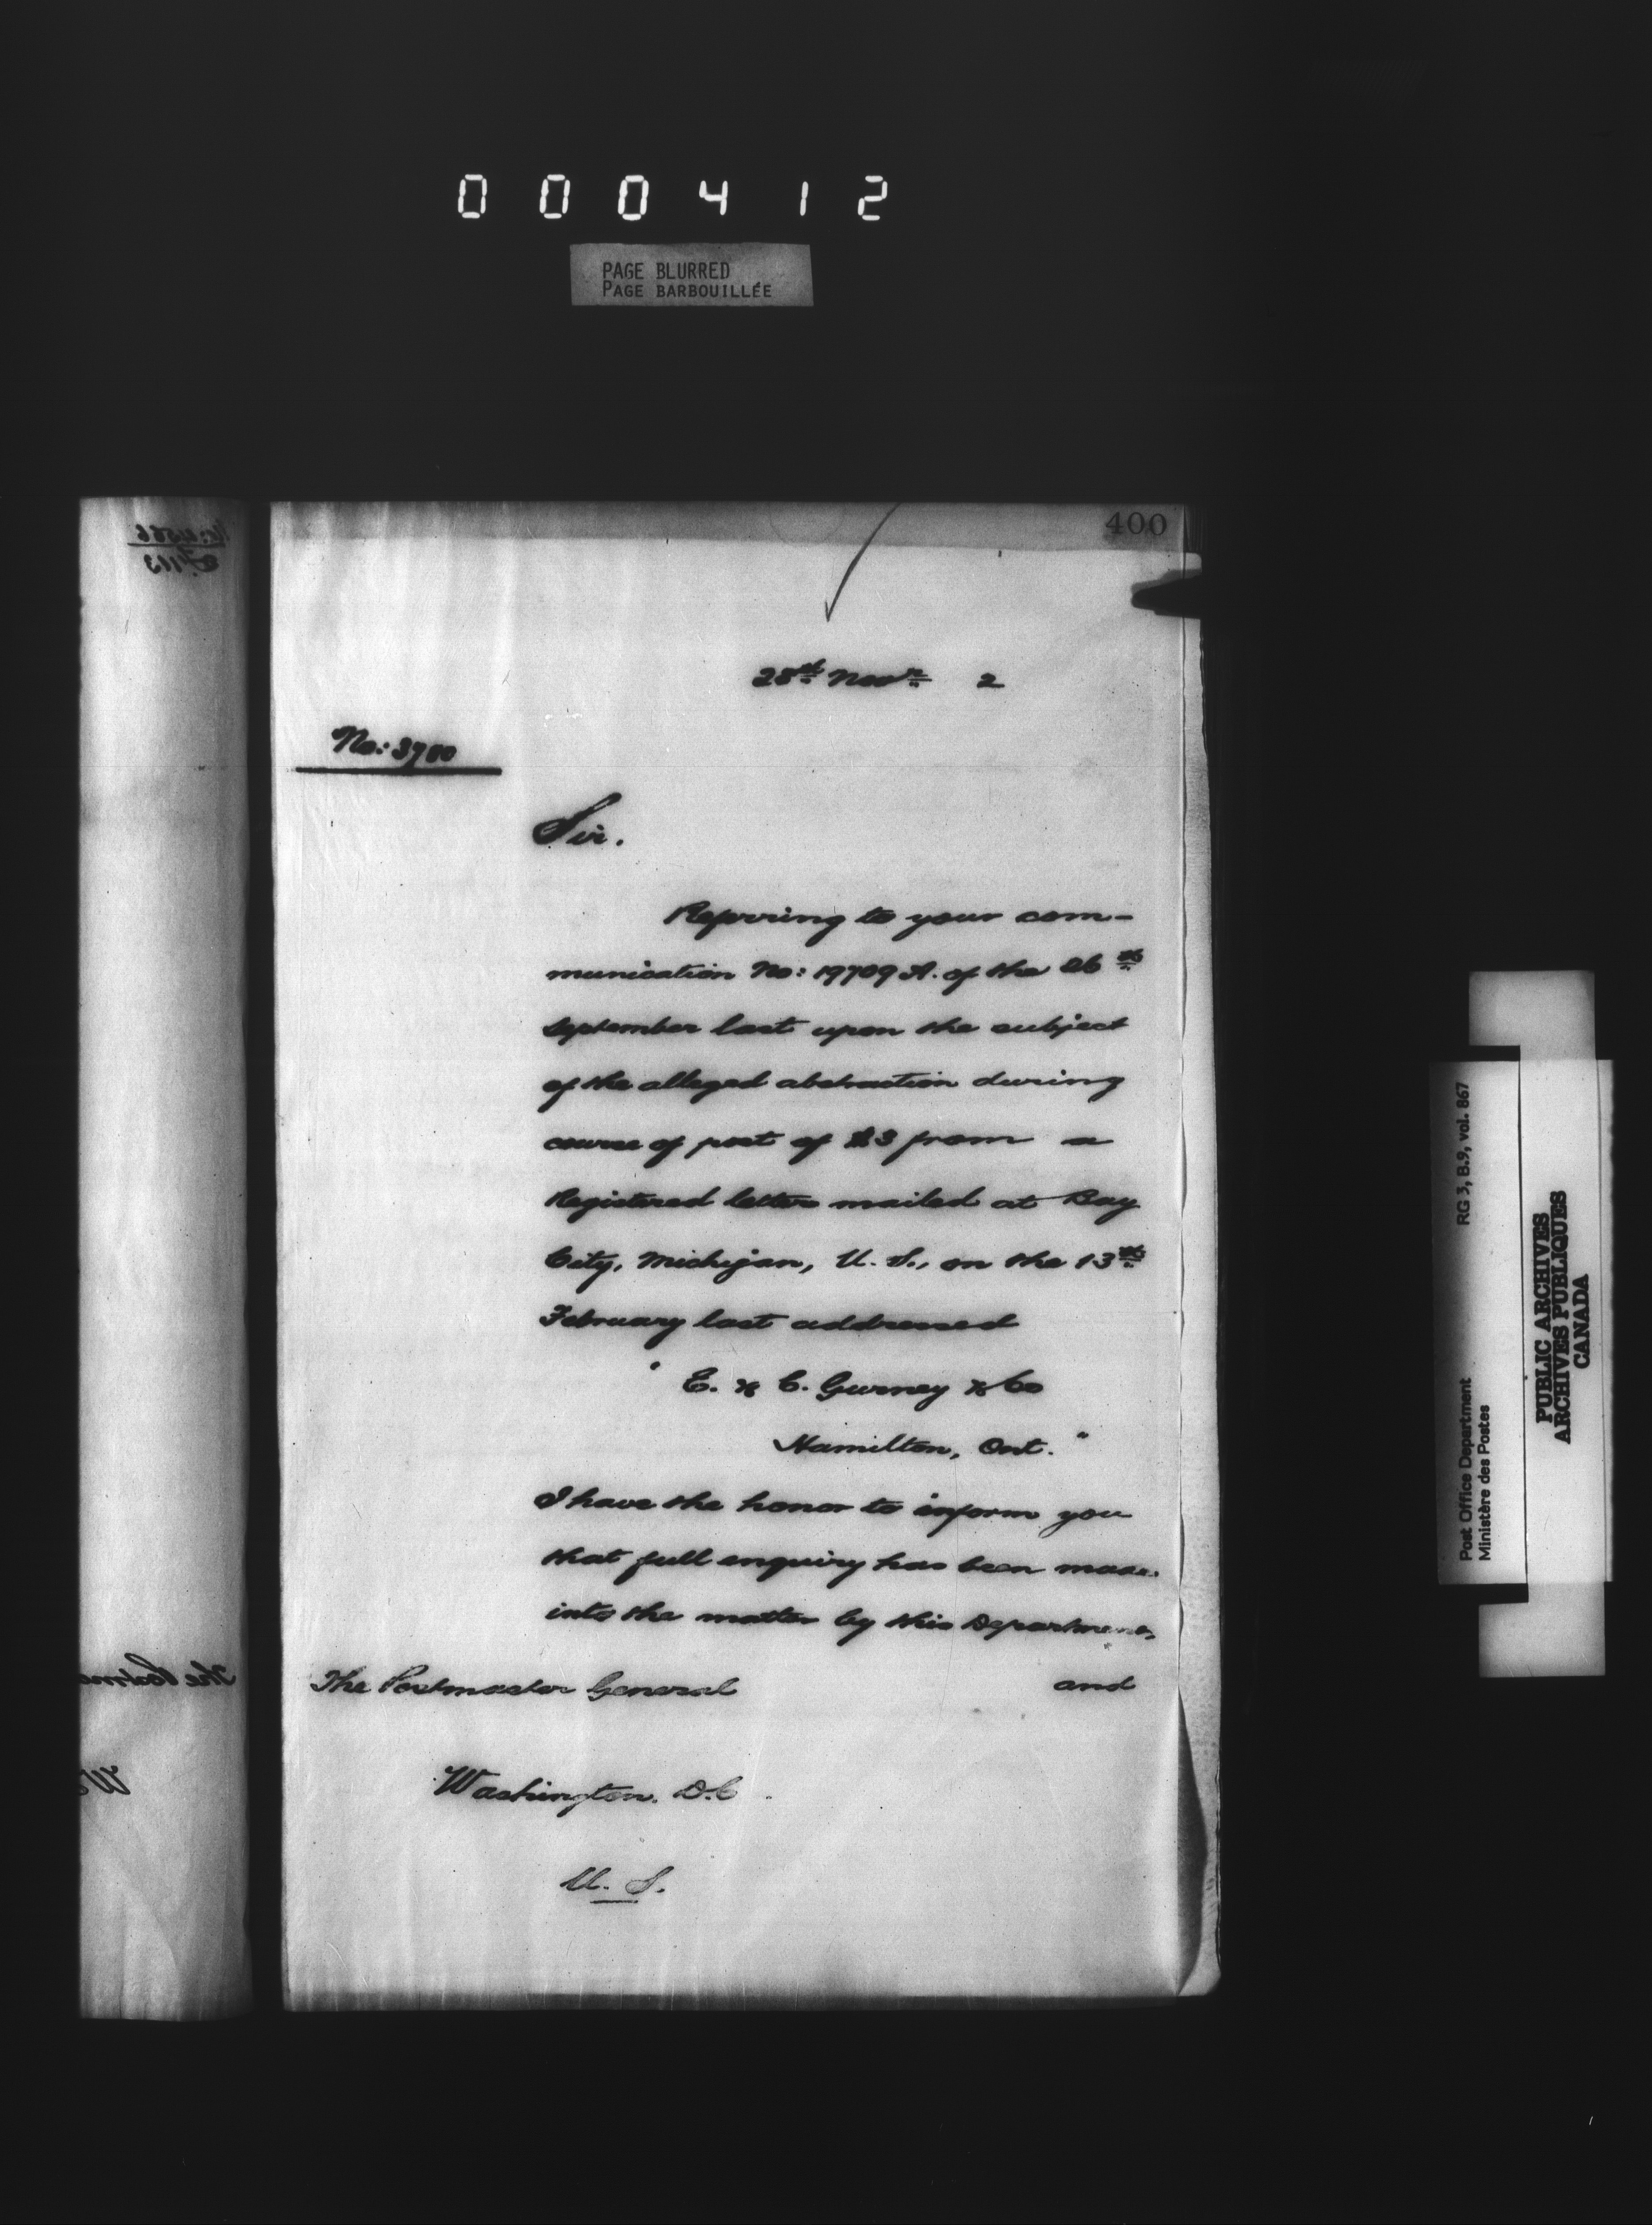 000412
PAGE BLURRED
PAGE BARBOUILLÉE
400
28th Novr. 2
No: 3780
Sir.
Referring to your com-
munication No: 19709 A. of the 26th
September last upon the subject
of the alleged abstraction during
course of post of $3 from a
Registered letter mailed at Bay
City, Michigan, U. S., on the 13th
February last addressed
" E. & C. Gurney & Co
Hamilton, Ont. "
I have the honor to inform you
that full enquiry has been made
into the matter by this Department,
and
The Postmaster General
Washington. D.C.
U. S.
Post Office Department RG 3, B.9, vol. 867
Ministère des Postes
PUBLIC ARCHIVES
ARCHIVES PUBLIQUES
CANADA